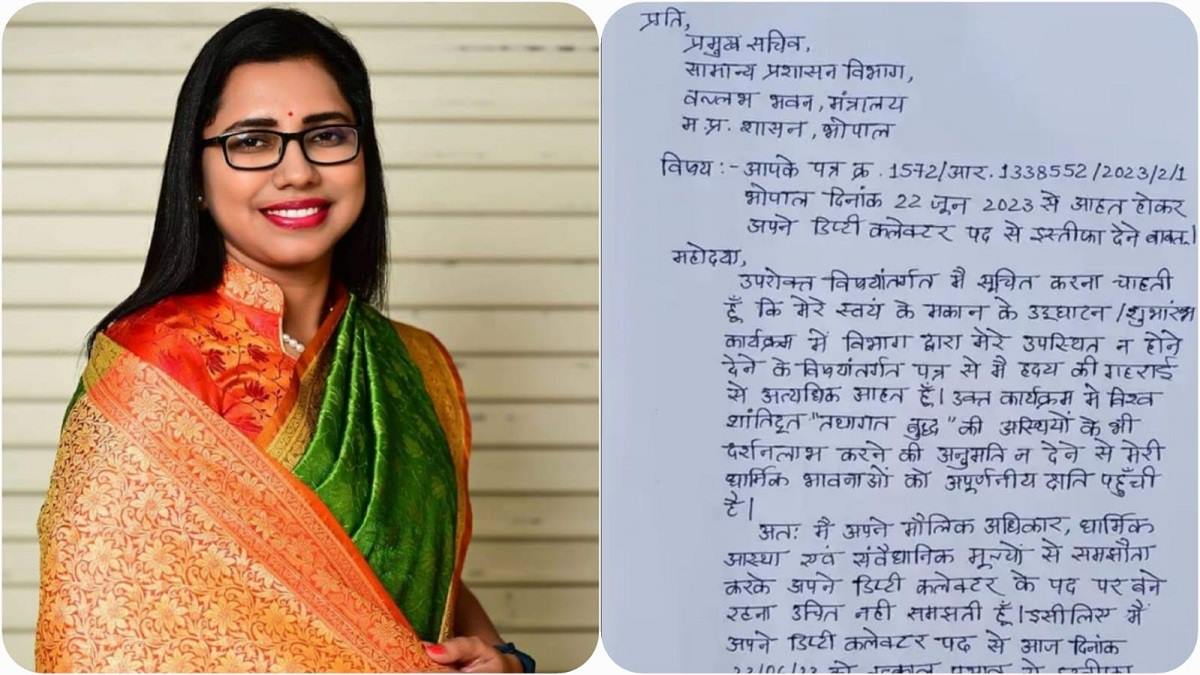 प्रति,
प्रमुख सचिव,
सामान्य प्रशासन विभाग,
वल्लभ भवन, मंत्रालय
म.प्र. शासन, भोपाल
विषय :- आपके पत्र क्र. 1572/आर. 1338552/2023/2/1
भोपाल दिनांक 22 जून 2023 से आहत होकर
अपने डिप्टी कलेक्टर पद से इस्तीफा देने बाबत्।
महोदया,
उपरोक्त विषयांतर्गत मै सूचित करना चाहती
हूँ कि मेरे स्वयं के मकान के उद्घाटन /शुभारंभ
कार्यक्रम में विभाग द्वारा मेरे उपस्थित न होने
देने के विषयांतर्गत पत्र से मै हृदय की गहराई
से अत्यधिक आहत हूँ। उक्त कार्यक्रम मे विश्व
शांतिदूत "तथागत बुद्ध" की अस्थियों के भी
दर्शनलाभ करने की अनुमति न देने से मेरी
धार्मिक भावनाओं को अपूर्णनीय क्षति पहुँची
है।
अतः मै अपने मौलिक अधिकार, धार्मिक
आस्था एवं संवैधानिक मूल्यों से समझौता
करके अपने डिप्टी कलेक्टर के पद पर बने
रहना उचित नही समझती हूँ। इसीलिए मैं
अपने डिप्टी कलेक्टर पद से आज दिनांक
को तत्काल प्रभाव से इस्तीफा